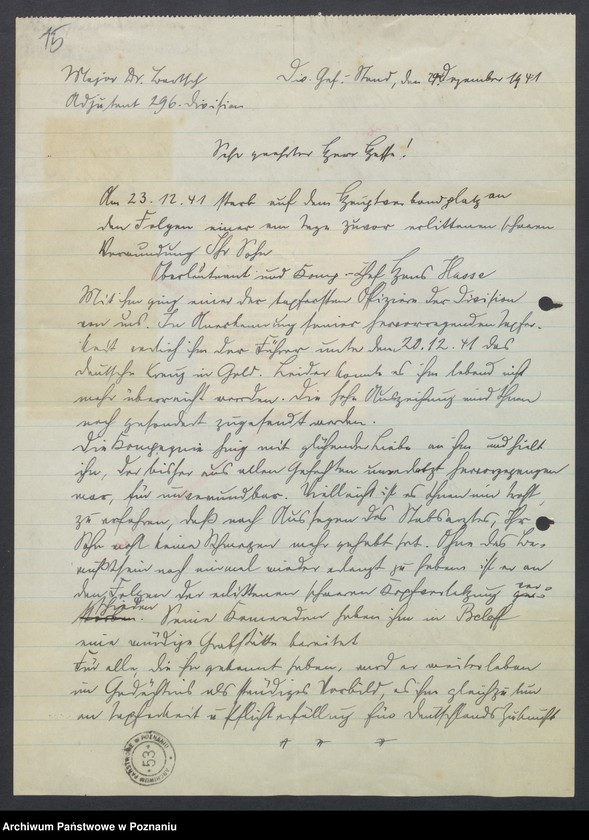 15
Major Dr. Bartsch Div. Gef.-Stand, den Dezember 1941
Adjutant 296. Division
Sehr geehrter Herr Hasse!
Am 23.12.41 starb auf dem Hauptverbandplatz an
den Folgen einer am Tage zuvor erlittenen schweren
Verwundung Ihr Sohn
Oberleutnant und Komp.-Chef Hans Hasse
Mit ihm ging einer der tapfersten Offiziere der Division
von uns. In Anerkennung seiner hervorragenden Tapfer-
keit verlieh ihm der Führer unter dem 20.12.41 das
deutsche Kreuz in Gold. Leider konnte es ihm lebend nicht
mehr überreicht werden. Die hohe Auszeichnung wird Ihnen
noch gesondert zugesandt werden.
Die Kompagnie hing mit glühender Liebe an ihm und hielt
ihn, der bisher aus allen Gefechten unverletzt hervorgegangen
war, für unverwundbar. Vielleicht ist es Ihnen ein Trost,
zu erfahren, daß nach Aussagen des Stabsarztes, Ihr
Sohn wohl keine Schmerzen mehr gehabt hat. Ohne das Be-
wußtsein noch einmal wieder erlangt zu haben ist er an
den Folgen der erlittenen schweren Kopfverletzung ver-
schieden. Seine Kameraden haben ihm in Beleff
eine würdige Grabstätte bereitet
Für alle, die ihn gekannt haben, wird er weiterleben
im Gedächtnis als ständiges Vorbild, es ihm gleichzutun
an Tapferkeit u Pflichterfüllung für Deutschlands Zukunft
* * *
ARCHIWUM PAŃSTWOWE W POZNANIU
53
Archiwum Państwowe w Poznaniu